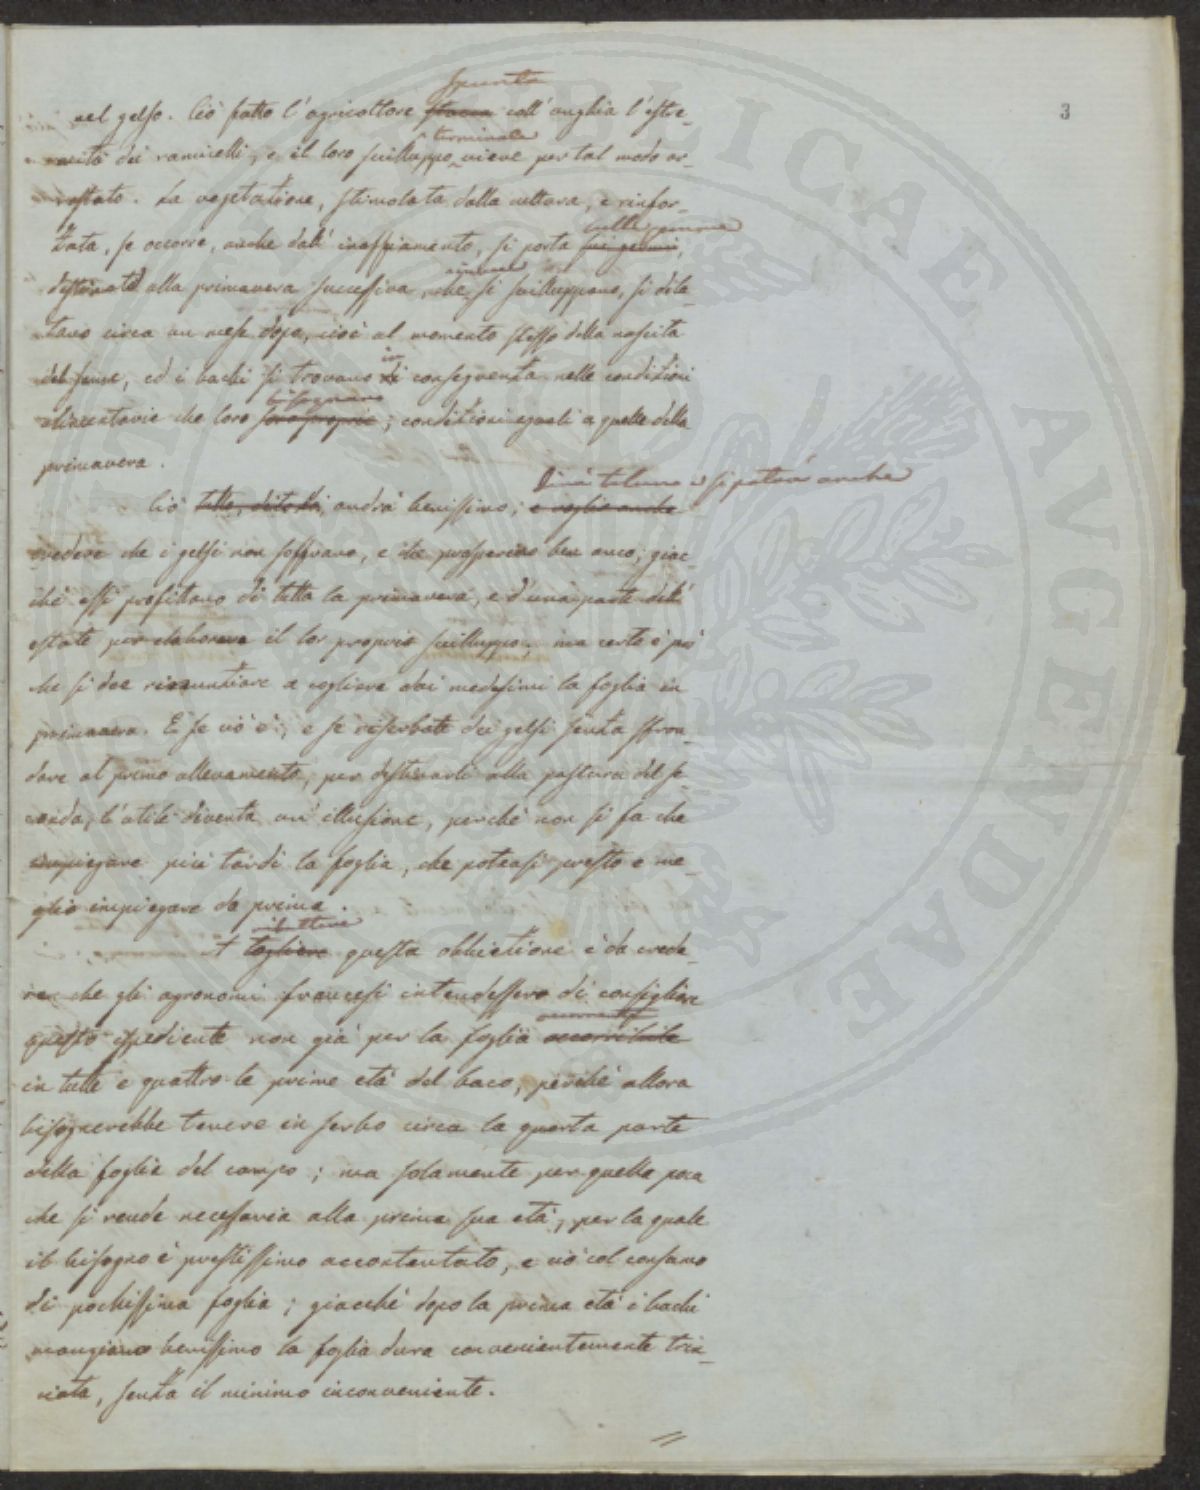 3
spunta
nel gelso. Ciò fatto l'agricoltore stacca coll'unghia l'estre-
terminale
mità dei ramicelli, e il loro sviluppo viene per tal modo ar-
restato. La vegetazione, stimolata dalla cultura, e rinfor-
sulle gemme
zata, se occorre, anche dall'inaffiamento, si porta sui germi,
destinate alla primavera successiva, che si sviluppano, si dila-
tano circa un mese dopo, cioè al momento stesso della nascita
in
del seme, ed i bachi si trovano di conseguenza nelle condizioni
bisognano
alimentarie che loro son proprie; condizioni eguali a quelle della
primavera.
Dirà taluno e si potrà anche
Ciò tutto, andrà benissimo; e voglio anche
credere che i gelsi non soffrano, e che prosperino ben anco; giac-
chè essi profittano di tutta la primavera, e d'una parte dell'
estate per elaborare il lor proprio sviluppo; ma certo è poi
che si dee rinunziare a cogliere dai medesimi la foglia in
primavera. E se ciò è; e se riserbate dei gelsi senza sfron-
dare al primo allevamento, per destinarli alla pastura del se-
condo, l'utile diventa un'illusione, perchè non si fa che
impiegare più tardi la foglia, che poteasi presto e me-
glio impiegare da prima.
ributtare
A togliere questa obbiezione è da crede-
re che gli agronomi francesi intendessero di consigliare
occorrente
questo espediente non già per la foglia occorribile
in tutte e quattro le prime età del baco, perchè allora
bisognerebbe tenere in serbo circa la quarta parte
della foglia del campo; ma solamente per quella poca
che si rende necessaria alla prima sua età, per la quale
il bisogno è prestissimo accontentato, e ciò col consumo
di pochissima foglia; giacchè dopo la prima età i bachi
mangiano benissimo la foglia dura convenientemente trin-
ciata, senza il minimo inconveniente.
PUBLICAE AVGENDAE